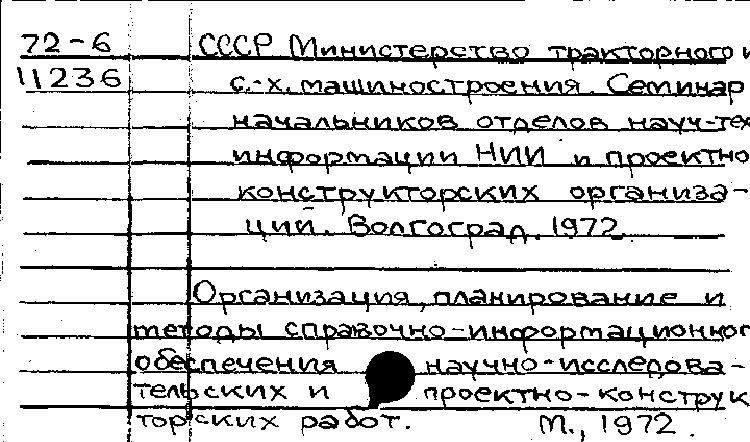 72-6 СССР Министерство тракторного и
11236 с.-х. машиностроения. Семинар
начальников отделов науч-тех
информации НИИ и проектно
конструкторских организа-
ций. Волгоград. 1972.
Организация, планирование и
методы справочно-информационног
обеспечения научно-исследова-
тельских и проектно-конструк
торских работ. М., 1972.